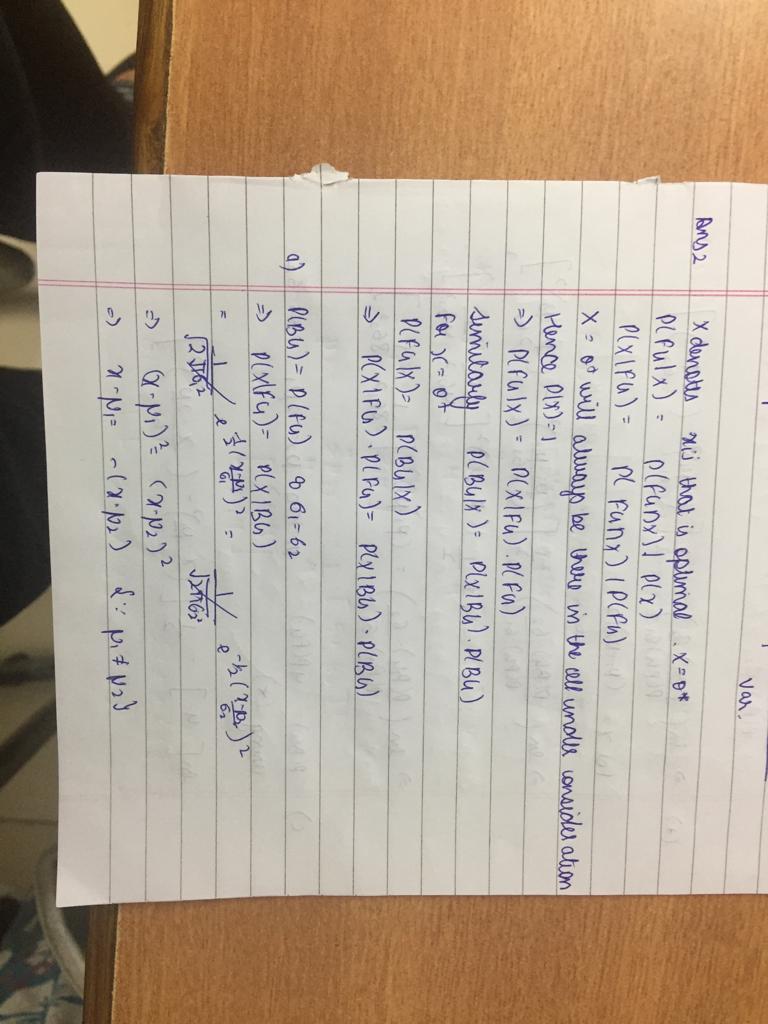 var.
Ans 2 X denotes x is that is optimal. X = θ*
P(FG|X) = P(FG∩X) / P(X)
P(X|FG) = P(FG∩X) / P(FG)
X = θ* will always be there in the cell under consideration
Hence P(X)=1
⇒ P(FG|X) = P(X|FG).P(FG)
Similarly P(BG|X) = P(X|BG).P(BG)
For x = θ*
P(FG|X) = P(BG|X)
⇒ P(X|FG).P(FG) = P(X|BG).P(BG)
a) P(BG) = P(FG) & σ₁=σ₂
⇒ P(X|FG) = P(X|BG)
= 1/√2πσ₁² e^½((x-μ₁)/σ₁)² = 1/√2πσ₂² e^-1/2((x-μ₂)/σ₂)²
⇒ (x-μ₁)² = (x-μ₂)²
⇒ x-μ₁ = -(x-μ₂) {∵ μ₁ ≠ μ₂}